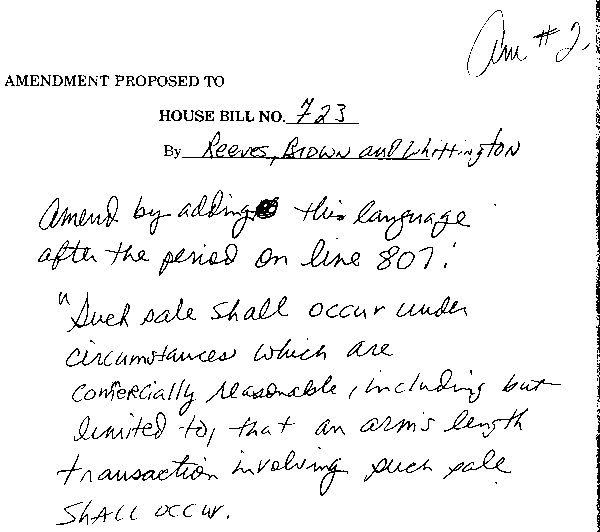 Am #2.
AMENDMENT PROPOSED TO
HOUSE BILL NO. 723
By Reeves, Brown and Whittington
Amend by adding this language
after the period on line 807:
"Such sale shall occur under
circumstances which are
comercially reasonable, including but
limited to, that an arm's length
transaction involving such sale
SHALL OCCUR.